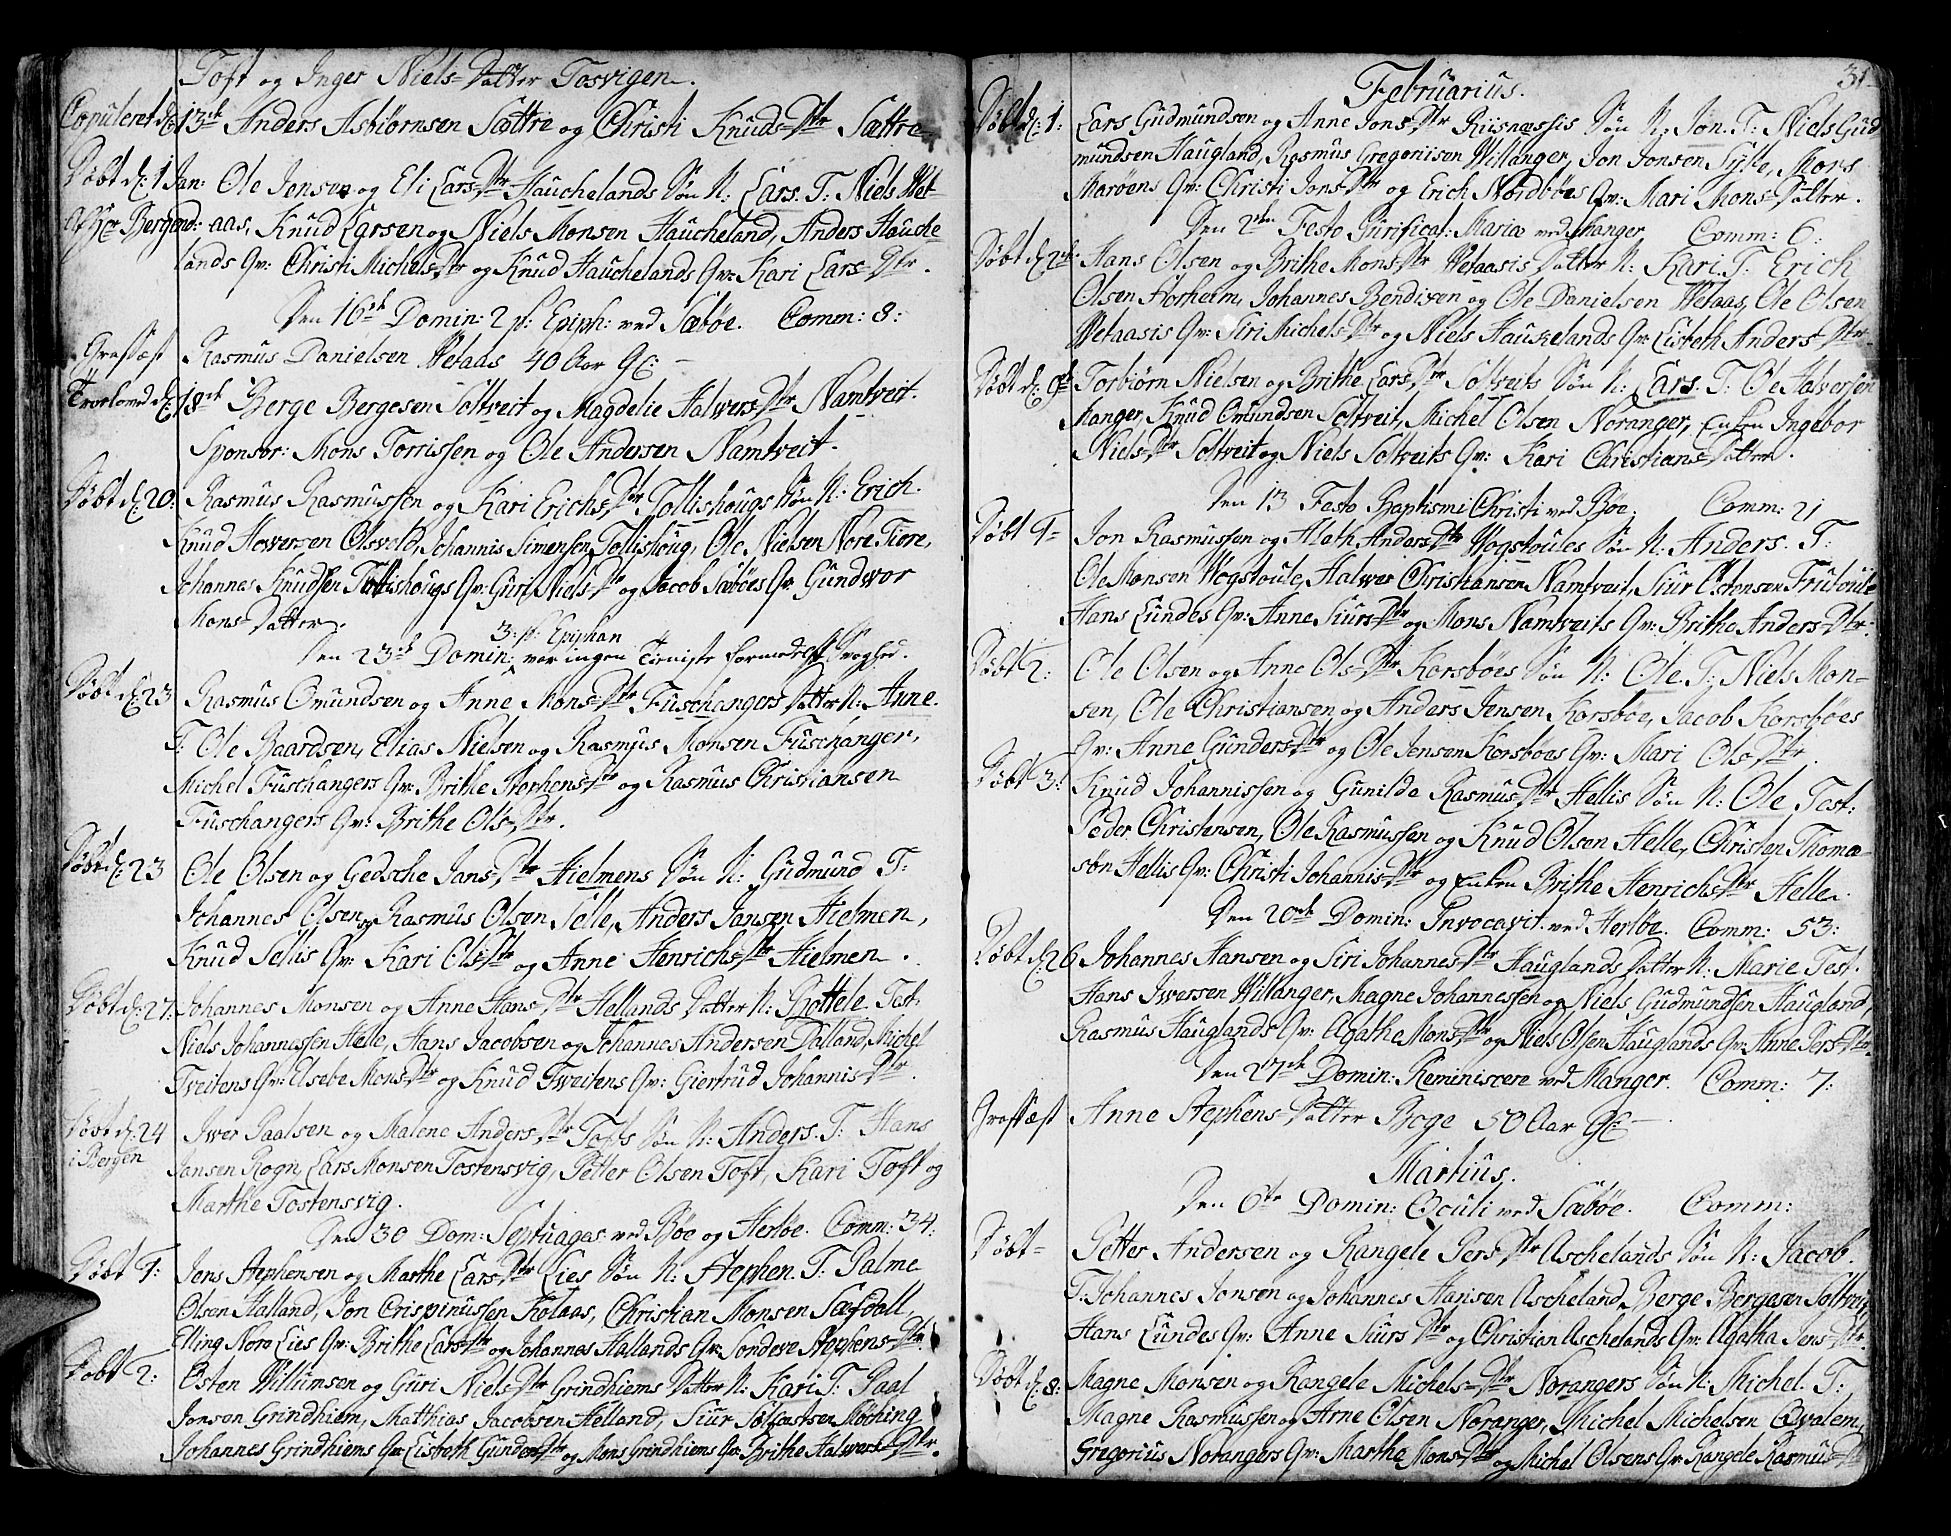 Toft og Inger Niels-Datter Tosvigen.
Copuleret d: 13de Anders Asbiörnsen Sættre og Christi Knuds-Dtr Sættre
Döbt d: 1 Jan: Ole Jensen og Eli Lars-Dtr Hauchelands Sön N: Lars. T: Niels Wet-
af Hr Bergend: aas, Knud Larsen og Niels Monsen Haucheland, Anders Hauche-
lands Qv: Christi Michels-Dtr og Knud Hauchelands Qv: Kari Lars-Dtr.
Den 16de Domin: 2 p: Epiph: ved Sæböe. Comm: 8:
Græsfæst Rasmus Danielsen Wetaas 40 Aar gl: -
Troelowed d: 18de Berge Bergesen Soltveit og Magdelie Halvers-Dtr Namtveit.
Sponsor: Mons Torrissen og Ole Andersen Namtveit.
Döbt d: 20: Rasmus Rasmussen og Kari Erichs-Dtr Tollishougs Sön N: Erich.
Knud Hosversen Olsvold, Johannis Simensen Tollishoug, Ole Nielsen Nore Fiore,
Johannes Knudsen Tollishougs Qv: Guri Niels-Dr og Jacob Sæböes Qv: Gundvor
Mons-Datter.
3: p: Epiphan
Den 23de Domin: var ingen Tieniste formedelst Svaghed.
Döbt d: 23 Rasmus Omundsen og Anne Mons-Dtr Fuschangers Datter N: Anne.
T: Ole Baardsen, Elias Nielsen og Rasmus Monsen Fuschanger,
Michel Fuschangers Qv: Brithe Stephens-Dtr og Rasmus Christiansen
Fuschangers Qv: Brithe Ols-Dtr.
Döbt d: 23 Ole Olsen og Gedsche Jans-Dtr Hielmens Sön N: Gudmund T:
Johannes Olsen og Rasmus Olsen Selle, Anders Jansen Hielmen,
Knud Sellis Qv: Kari Ols-Dtr og Anne Henrichs-Dtr Hielmen.
Döbt d: 27: Johannes Monsen og Anne Hans-Dtr Hellands Datter N: Lottele. Test.
Niels Johannessen Helle, Hans Jacobsen og Johannes Andersen Dalland, Michel
Tveitens Qv: Asebe Mons-Dtr og Knud Tweitens Qv: Giertrud Johannis-Dtr.
Döbt d: 24 Iwer Paalsen og Malene Anders-Dtr Tofts Sön N: Anders. T: Hans
i Bergen Jansen Rogn, Lars Monsen Tostensvig, Petter Olsen Toft, Kari Toft og
Marthe Tostensvig.
Den 30 Dom: Septuages. ved Böe og Herlöe. Comm: 34:
Döbt 1: Jens Stephensen og Marthe Lars-Dtr Lies Sön N: Stephen. T: Palme
Olsen Halland, Jon Crispinussen Kolaas, Christian Monsen Sægdall,
Elling Nore Lies Qv: Brithe Lars-Dtr og Johannes Hallands Qv: Sondeve Stephens-Dtr.
Döbt 2: Osten Willumsen og Guri Niels-Dtr Grindhiems Datter N: Kari T: Paal
Jonsen Grindhiem, Matthias Jacobsen Helland, Siur Möching
Johannes Grindhiems Qv: Lisbeth Gunders-Dtr og Mons Grindhiems Qv: Brithe Halvers-Dtr.
31
Februarius.
Döbt d: 1: Lars Gudmundsen og Anne Jons-Dtr Riisnæssis Sön N: Jon. T: Niels Gud
mundsen Haugland, Rasmus Gregoriisen Willanger, Jon Jonsen Sylte, Mors
Maröens Qv: Christi Jons-Dtr og Erich Nordböes Qv: Mari Mons-Datter.
Den 2den Festo Purificat: Mariæ ved Manger Comm: 6:
Döbt d: 2de: Hans Olsen og Brithe Mons-Dtr Wetaasis Datter N: Kari. T: Erich
Olsen Hosheim, Johannes Bendixen og Ole Danielsen Wetaas, Ole Olsen
Wetaasis Qv: Siri Michels-Dtr og Niels Hauskelands Qv: Lisbeth Anders-Dtr.
Döbt d: 9de Torbiörn Nielsen og Brithe Lars-Dtr Soltveits Sön N: Lars. T: Ole Halversen
Manger, Knud Omundsen Soltveit, Michel Olsen Noranger, Enken Ingebor
Niels-Dtr Soltveit og Niels Soltveits Qv: Kari Christians-Datter.
Den 13 Festo Baptismi Christi ved Böe. Comm: 21
Döbt 1- Jon Rasmussen og Aleth Anders-Dtr Wogstoules Sön N: Anders. T:
Ole Monsen Wogstoule, Halver Christiansen Namtveit, Siur Ostensen Frutoule
Hans Lundes Qv: Anne Siurs-Dtr og Mons Namtveits Qv: Brithe Anders-Dtr.
Döbt 2: Ole Olsen og Anne Ols-Dtr Korsboes Sön N: Ole T: Niels Mon-
sen, Ole Christiansen og Anders Jensen Korsböe, Jacob Korsböes
Qv: Anne Gunders-Dtr og Ole Jensen Korsboes Qv: Mari Ols-Dtr.
Döbt 3: Knud Johannissen og Gunilde Rasmus-Dtr Hellis Sön N: Ole Test:
Peder Christensen, Ole Rasmussen og Knud Olsen Helle, Christen Thomæ-
sön Hellis Qv: Christi Johannis-Dtr og Enken Brithe Henrichs-Dtr Helle.
Den 20de Domin: Invocavit ved Herlöe. Comm: 53:
Döbt d: 26 Johannes Hansen og Siri Johannes-Dtr Hauglands Datter N: Marie Test.
Hans Iwersen Willanger, Magne Johannessen og Niels Gudmundsen Haugland,
Rasmus Hauglands Qv: Agathe Mons-Dtr og Niels Olsen Hauglands Qv: Anne Pers-Dtr.
Den 27de Domin: Reminiscere ved Manger. Comm: 7:
Græsfæst Anne Stephens-Datter Boge 50 Aar gl: -
Martius.
Den 6te Domin: Oculi ved Sæböe. Comm:
Döbt- Petter Andersen og Rangele Pers-Dtr Aschelands Sön N: Jacob.
T: Johannes Jonsen og Johannes Hansen Ascheland, Berge Bergesen Soltveit
Hans Lundes Qv: Anne Siurs-Dtr og Christian Aschelands Qv: Agatha Jens-Dtr
Döbt d: 8: Magne Monsen og Rangele Michels-Dtr Norangers Sön N: Michel. T:
Magne Rasmussen og Arne Olsen Noranger, Michel Michelsen Qvalem,
Gregorius Norangers Qv: Marthe Mons-Dtr og Michel Olsens Qv: Rangele Rasmus-Dtr